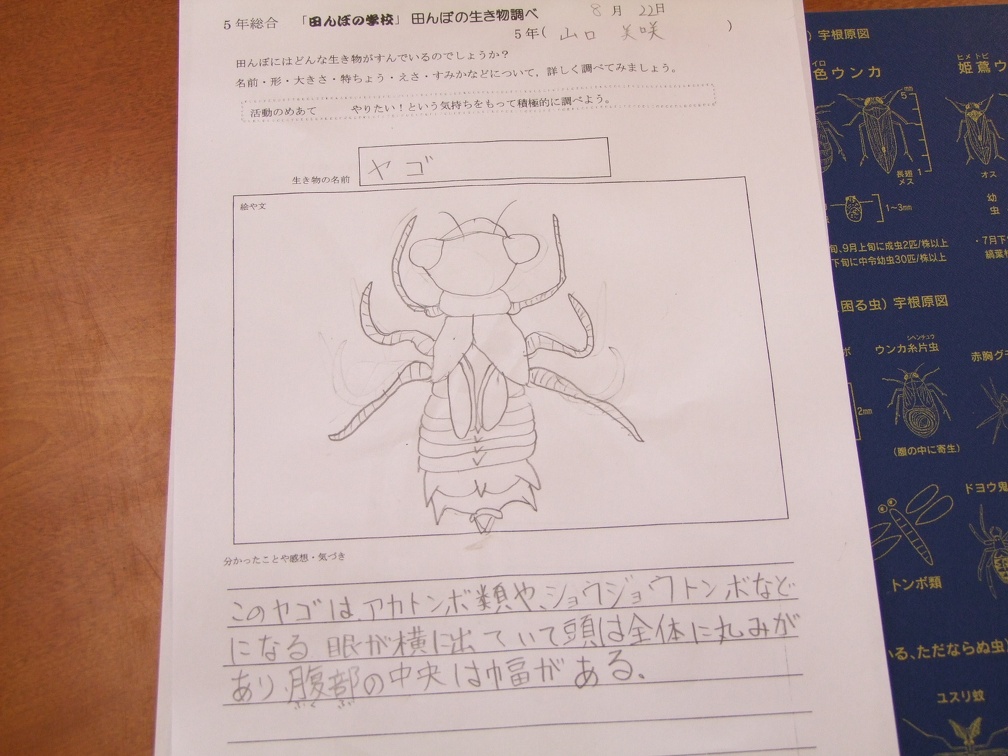 5年総合 「田んぼの学校」田んぼの生き物調べ
8月 22日
5年( 山口 美咲 )
田んぼにはどんな生き物がすんでいるのでしょうか?
名前・形・大きさ・特ちょう・えさ・すみかなどについて，詳しく調べてみましょう。
活動のめあて やりたい！という気持ちをもって積極的に調べよう。
生き物の名前 ヤゴ
絵や文
分かったことや感想・気づき
このヤゴは、アカトンボ類や、ショウジョウトンボなど
になる 眼が横に出ていて頭は全体に丸みが
あり、腹部の中央は巾幅がある。
ふく ぶ
）宇根原図
イロ
色ウンカ
ヒメ トビ
姫鳶ウ
5mm
1
長翅
メス
オス
1~3mm
幼
虫
旬、9月上旬に成虫2匹/株以上
下旬に中令幼虫30匹/株以上
・7月下
縞葉
困る虫）宇根原図
ボ
シヘンチュウ
ウンカ糸片虫
赤胸グ
2mm
（腹の中に寄生）
ドヨウ鬼
トンボ類
いる、ただならぬ虫
ユスリ蚊